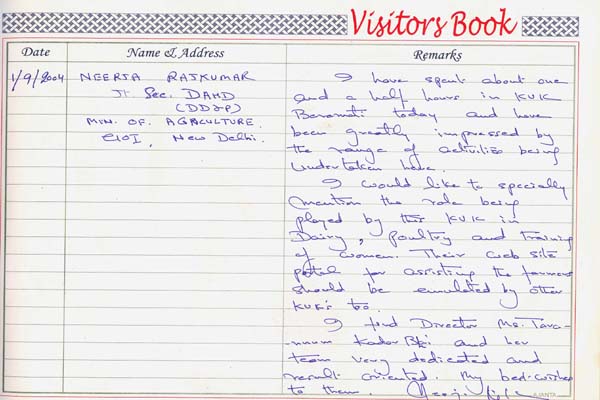 Visitors Book
Date
Name & Address
Remarks
1/9/2004
NEERJA RAJKUMAR
Jt Sec. DAHD
(DD&P)
MIN. OF. AGRICULTURE.
GOI, New Delhi.
I have spent about one
and a half hours in KVK
Baramati today and have
been greatly impressed by
the range of activities being
undertaken here.
I would like to specially
mention the role being
played by this KVK in
Dairy, Poultry and training
of women. Their web site
portal for assisting the farmers
should be emulated by other
KVK's too.
I find Director Ms. Tara-
nnum and her
team very dedicated and
result oriented. My best wishes
to them.
AJANTA